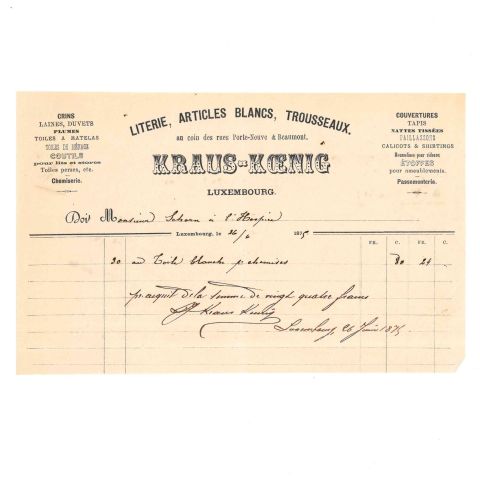 CRINS
LAINES, DUVETS
PLUMES
TOILES A MATELAS
TOILES DE MÉNAGE
COUTILS
pour lits et stores
Toiles peintes, etc.
Chemiserie.
LITERIE, ARTICLES BLANCS, TROUSSEAUX.
au coin des rues Porte-Neuve & Beaumont.
KRAUS-KŒNIG
LUXEMBOURG.
COUVERTURES
TAPIS
NATTES TISSÉES
PAILLASSONS
CALICOTS & SHIRTINGS
Mousselines pour rideaux
ÉTOFFES
pour ameublements.
Passementerie.
Doit Monsieur Schorn à l'Hospice
Luxembourg, le 26/6 1875
FR. C. FR. C.
30 au Toile blanche p chemises 80 24 —
p. acquit de la somme de vingt quatre francs
Kraus Kœnig
Luxembourg 26 Juin 1875